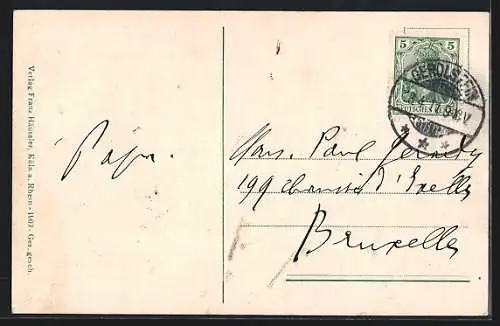 Verlag Franz Häussler, Köln a. Rhein - 1607 - Ges. gesch.
5 5
DEUTSCHES
GEROLSTEIN
Papa.
Mons. Paul
199 chaussée d'Ixelles
Bruxelles